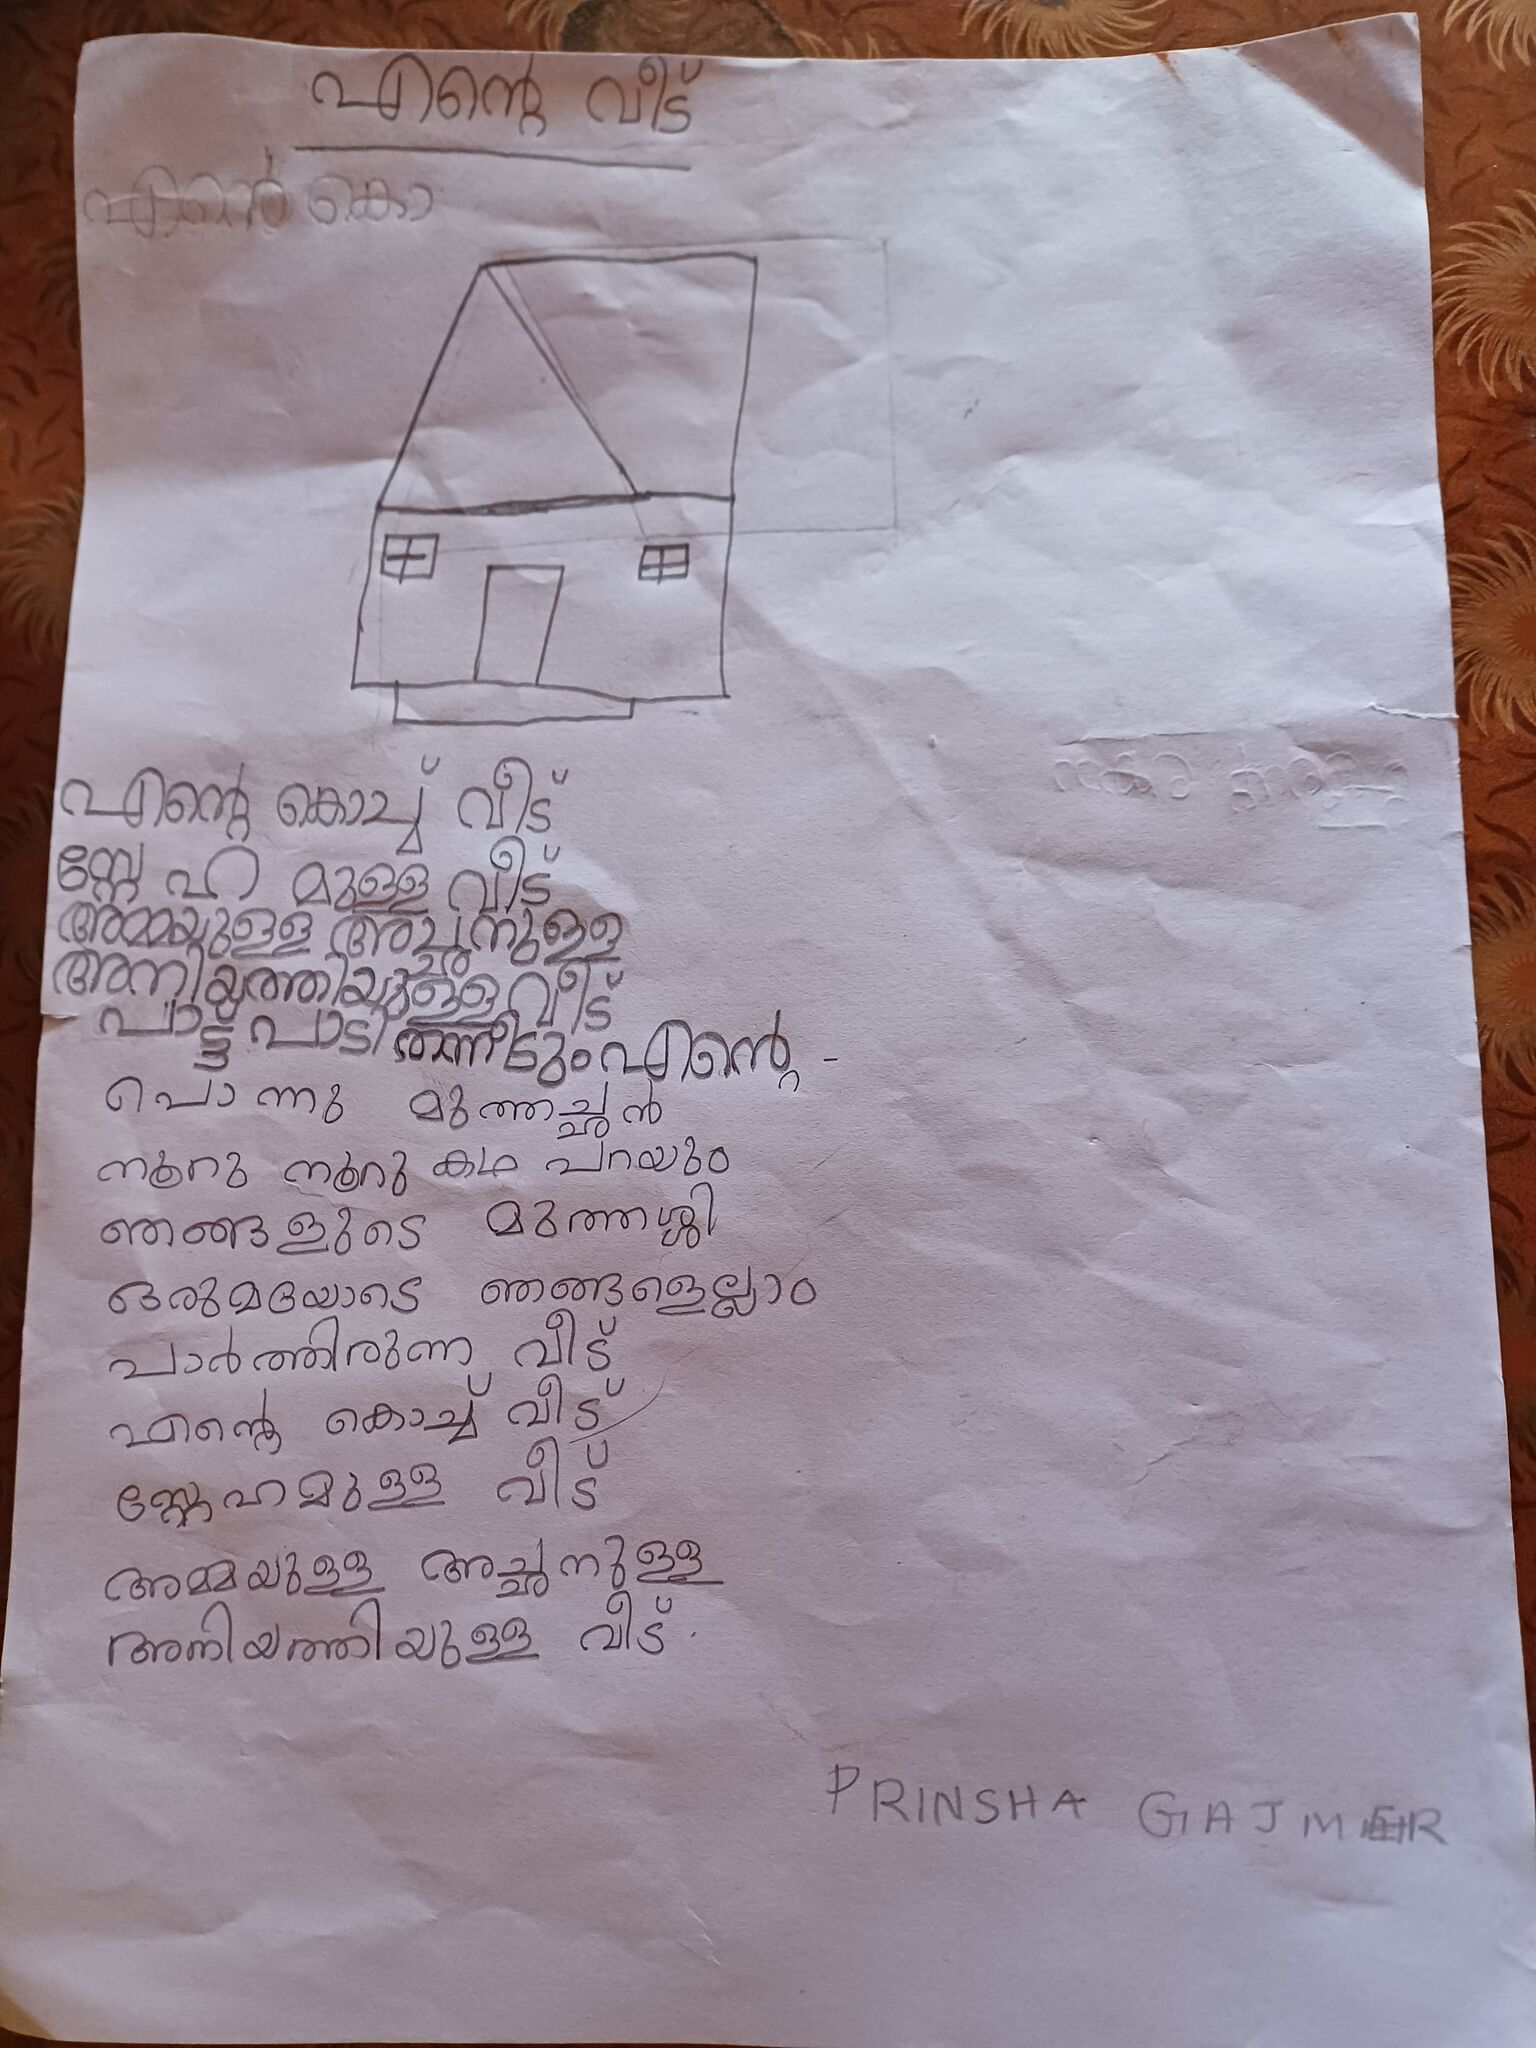 എന്റെ വീട്
എന്റെ കൊ
എന്റെ കൊച്ച് വീട്
സ്നേ ഹ മുള്ള വീട്
അമ്മയുള്ള അച്ഛനുള്ള
അനിയത്തിയുള്ള വീട്
പാട്ട് പാടി തന്നീടും എന്റെ -
പൊന്നു മുത്തച്ഛൻ
നൂറു നൂറു കഥ പറയും
ഞങ്ങളുടെ മുത്തശ്ശി
ഒരുമയോടെ ഞങ്ങളെല്ലാം
പാർത്തിരുന്ന വീട്
എന്റെ കൊച്ച് വീട്
സ്നേഹമുള്ള വീട്
അമ്മയുള്ള അച്ഛനുള്ള
അനിയത്തിയുള്ള വീട്.
PRINSHA GAJMER